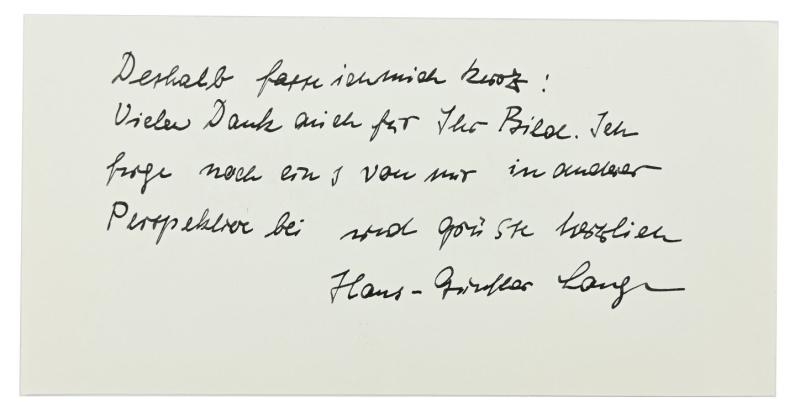 Deshalb fasse ich mich kurz:
Vielen Dank auch für Ihr Bild. Ich
füge noch eins von mir in anderer
Perspektive bei und grüsse herzlich
Hans-Günther Lange